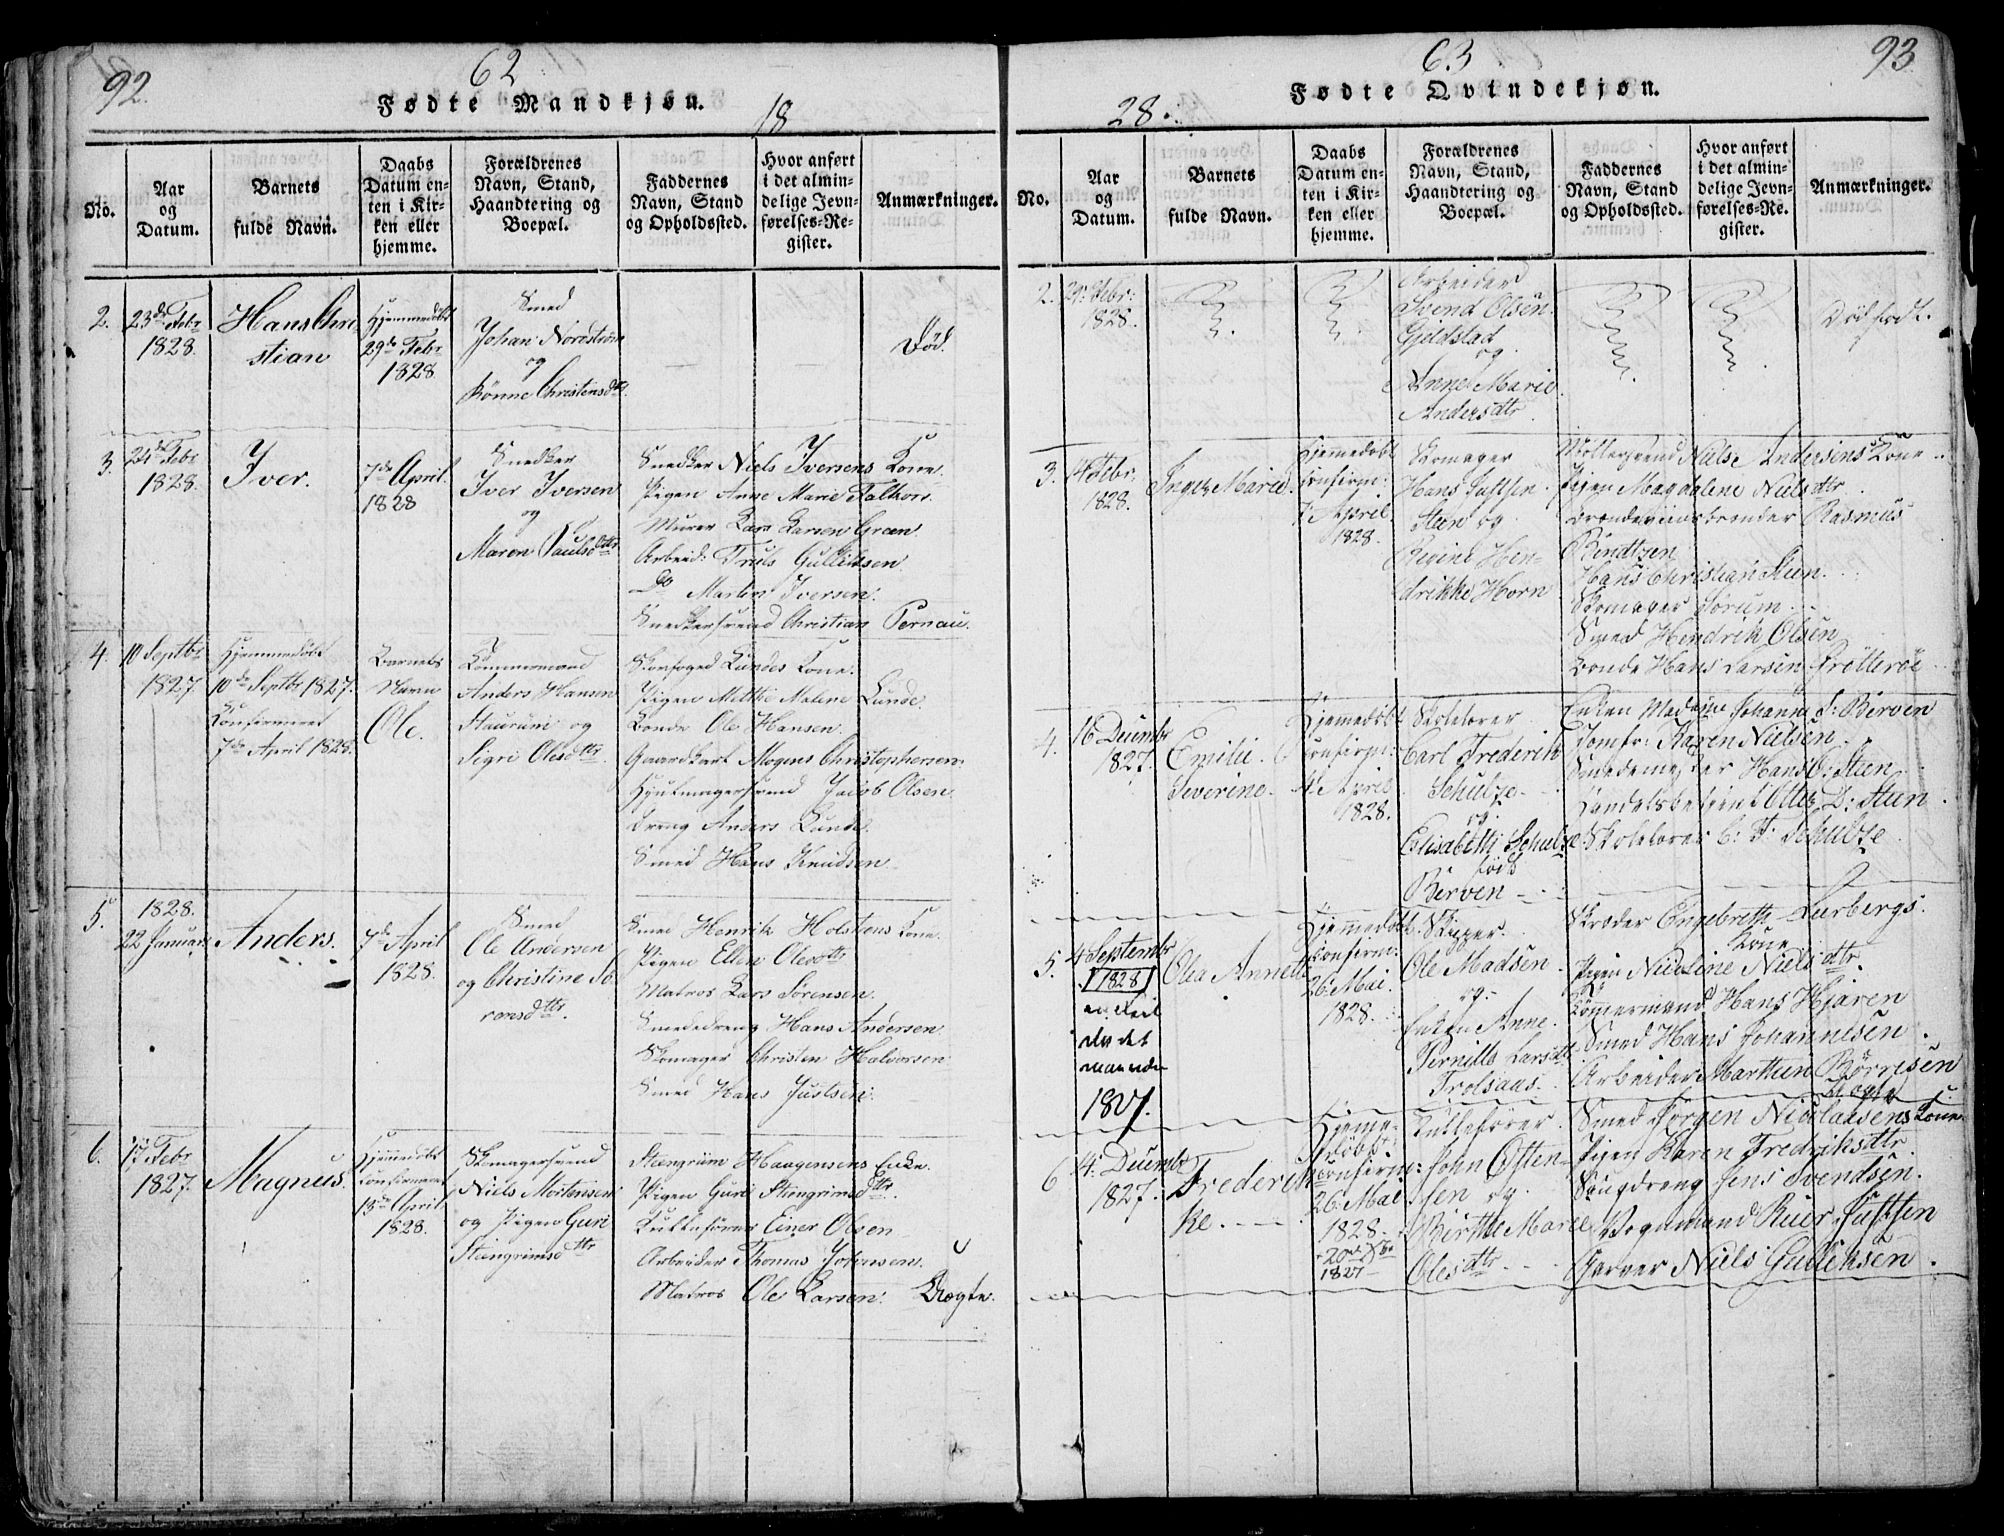 92.
62
Fødte Mandkjøn.
18
No.
Aar
og
Datum.
Barnets
fulde Navn.
Daabs
Datum en-
ten i Kir-
ken eller
hjemme.
Forældrenes
Navn, Stand,
Haandtering og
Boepæl.
Faddernes
Navn, Stand
og Opholdssted.
Hvor anført
i det almin-
delige Jevn-
førelses-Re-
gister.
Anmærkninger.
2.
23de Febr
1828.
Hans Chri
stian
Hjemmedøbt
29de Febr
1828
Smed
Johan Nordstrøm
og
Rønne Christensdttr.
Død.
3.
24de Febr
1828.
Iver.
7de April
1828
Snedker
Iver Iversen
og
Maren Paulsdttr
Snedker Niels Iversens Kone.
Pigen Anne Marie Falkor.
Murer Lars Larsen Green
Arbeid: Truls Gulliksen
Do Martin Iversen.
Snedkersvend Christian Pernau.
4.
10 Septbr
1827.
Hjemmedøbt
10de Septbr 1827.
Confirmeret
7de April 1828.
Barnets
Navn
Ole.
Tømmermand
Anders Hansen
Staurum og
Sigri Olesdttr.
Skovfoged Lundes Kone.
Pigen Mitthe Malene Lunde.
Bonde Ole Hansen.
Gaardkarl Mogens Christophersen.
Hjulmagersvend Jacob Olsen
Dreng Anders Lunde.
Smed Hans Knudsen
5.
1828.
22 Januar
Anders.
7de April
1828.
Smed
Ole Andersen
og Christine Sø
rensdttr.
Smed Henrik Holstens Kone.
Pigen Ellen Olesdttr
Matros Lars Sørensen.
Smededreng Hans Andersen
Skomager Christen Halvorsen
Smed Hans Justsen.
6.
17 Febr
1827.
Magnus.
Hjemmedøbt
Confirmeret
13de April
1828.
Skomagersvend
Niels Mortensen
og Pigen Guri
Steingrimsdttr
Steingrim Haagensens Enke.
Pigen Guri Steingrimsdttr.
Kuttefører Einer Olsen
Arbeider Thomas Johnsen.
Matros Ole Larsen. Uægte.
93
63
Fødte Qvindekjøn.
28.
No.
Aar
og
Datum.
Barnets
fulde Navn.
Daabs
Datum en-
ten i Kir-
ken eller
hjemme.
Forældrenes
Navn, Stand,
Haandtering og
Boepæl.
Faddernes
Navn, Stand
og Opholdssted.
Hvor anført
i det almin-
delige Jevn-
førelses-Re-
gister.
Anmærkninger.
2.
29: Febr:
1828.
Arbeider
Svend Olsen.
Gjeldstad
og
Anne Marie
Andersdttr
Dødfødt.
3.
4 Febr.
1828.
Inger Marie.
Hjemedøbt
Confirm:
7 April
1828.
Skomager
Hans Justsen
Steen og
Regine Hen-
drikke Horn
Møllersvend Nielse Andersens Kone
Pigen Magdalene Nielsdttr
Brændeviinsbrænder Rasmus
Bendtzen
Hans Christian Steen.
Skomager Sørum
Smed Hendrik Olsen
Bonde Hans Larsen Trötteröe
4.
16 Decembr
1827.
Emilie
Severine
Hjemedøbt
Confirm:
4 April
1828.
Skolelærer
Carl Frederik
Schultze
og
Elisabeth Schultze
født
Berven
Enken Madame Johanne S: Berven
Jomfr: Karen Nielsen
Smedemester Hans O: Steen
Handelsbetjent Otto D: Steen.
Skolelærer C: F: Schultze
5.
4 Septembr
1828
en Feil
da det
maa være
1827.
Olea Annette
Hjemmedøbt
Confirm:
26 Mai
1828.
Skipper
Ole Madsen
og
Enken Anne
Pernille Larsdttr
Trolsaas.
Skræder Engebreth Lerbergs
Kone
Pigen Nicoline Nielsdttr
Tømmermand Hans Hjaren
Smed Hans Johannesen
Arbeider Marthin Børresen
Uægte
6
4: Decembr
1827.
Frederik
ke
Hjeme-
døbt
Confirm:
26: Mai
1828.
20de Xbr
1827
Kuttefører
John Often-
sen og
Birthe Marie
Olesdttr
Smed Jørgen Nicolaisens Kone
Pigen Karen Fredriksdttr
Saugdreng Jens Svendsen.
Vognmand Reier Justsen
Garver Niels Gulliksen.